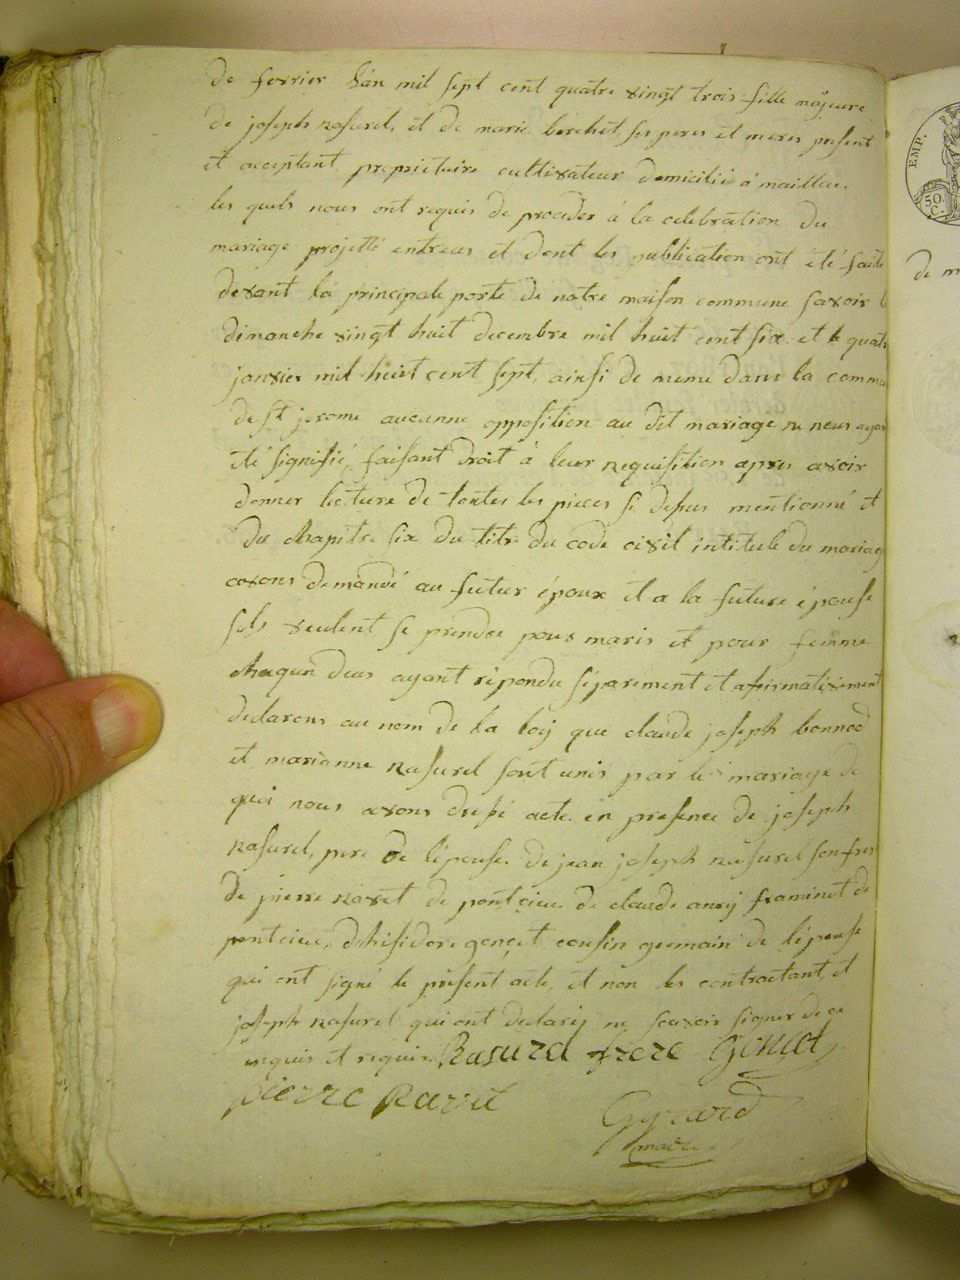 de fevrier l'an mil sept cent quatre vingt trois fille majeure
de joseph Rasurel, et de marie berchet ses peres et meres present
et acceptant proprietaire cultivateur domicilié à maillac.
les quels nous ont requis de proceder à la celebration du
mariage projetté entreux et dont les publication ont été faite
devant la principale porte de notre maison commune savoir l
dimanche vingt huit decembre mil huit cent six et le quatr
janvier mil huit cent sept, ainsi de meme dans la commu
de st jerome aucunne opposition au dit mariage ne nous ayan
été signifié, faisant droit à leur requisition apres avoir
donner lecture de toutes les pieces si desus mentionné et
du chapitre six du titre du code civil intitulé du mariag
avons demandé au futur époux et a la future épouse
sils veulent se prendre pour maris et pour femme
chaqun deus ayant répondu séparement et afirmativement
declarons au nom de la loy que claude joseph bonnod
et marianne Rasurel sont unis par le mariage de
quoi nous avons dressé acte en presence de joseph
Rasurel, pere de l'épouse, de jean joseph Rasurel son frer
de pierre Ravet de de claude framinet de
d'hisidore gençet cousin germain de l'épouse
qui ont signé le présent acte, et non les contractant, et
joseph Rasurel qui ont declaréj ne savoir signer de ce
enquis et requis. Rasurel frere Gencet
pierre Ravet
Gyrard
maire
EMP.
50.
C.
de m